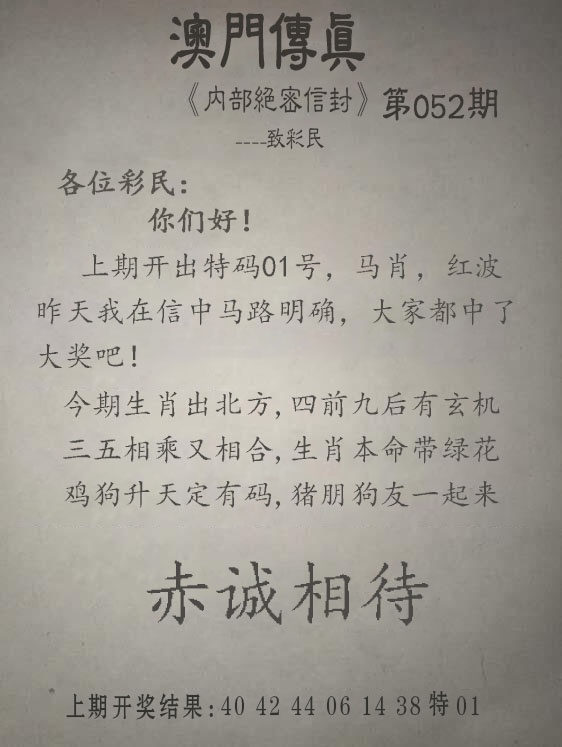 澳門傳眞
《内部絕密信封》第052期
----致彩民
各位彩民：
你们好！
上期开出特码01号，马肖，红波
昨天我在信中马路明确，大家都中了
大奖吧！
今期生肖出北方，四前九后有玄机
三五相乘又相合，生肖本命带绿花
鸡狗升天定有码，猪朋狗友一起来
赤诚相待
上期开奖结果：40 42 44 06 14 38特01